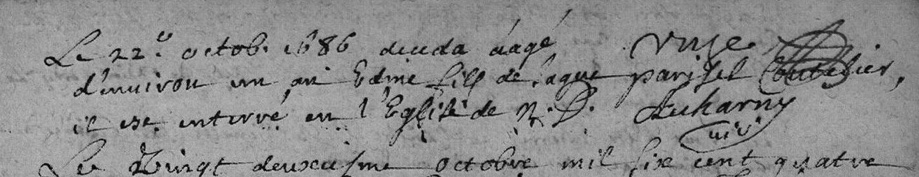 Le 22e octob. 1686 deceda aagé
d'environ un an Edme fils de Jaque parisel Coutelier,
il est enterré en l'Eglise de N. D.
Le Vingt deuxiesme octobre mil six cent quatre